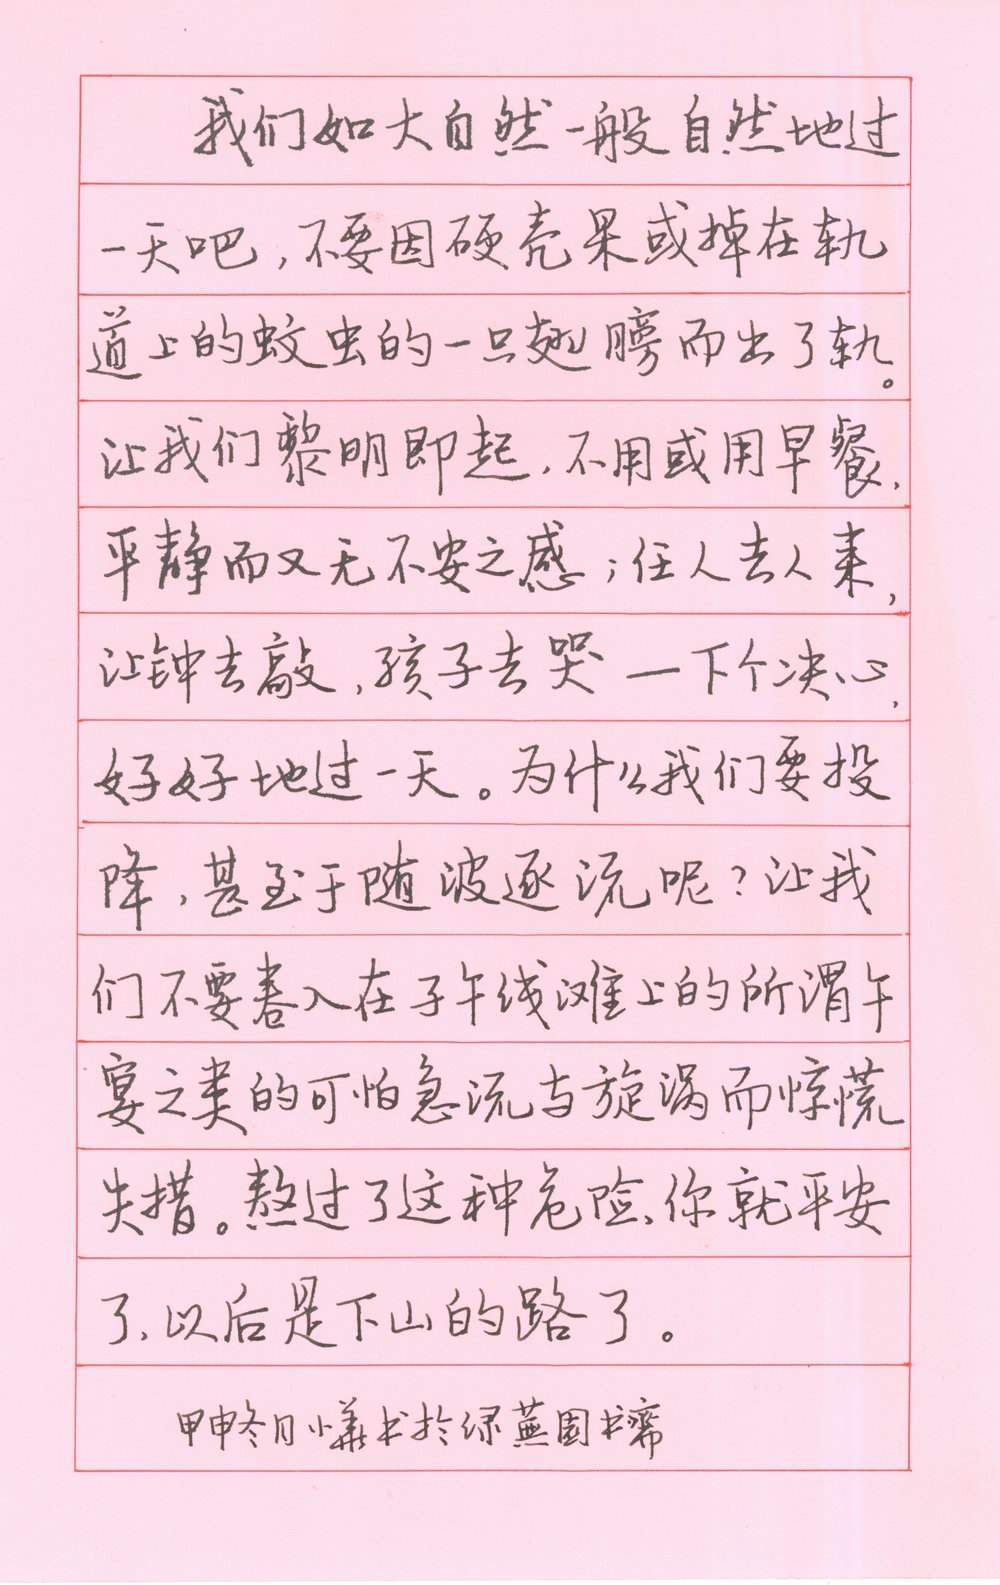 我们如大自然一般自然地过
一天吧，不要因硬壳果或掉在轨
道上的蚊虫的一只翅膀而出了轨。
让我们黎明即起，不用或用早餐，
平静而又无不安之感；任人去人来，
让钟去敲，孩子去哭—下个决心，
好好地过一天。为什么我们要投
降，甚至于随波逐流呢？让我
们不要卷入在子午线滩上的所谓午
宴之类的可怕急流与旋涡而惊慌
失措。熬过了这种危险、你就平安
了，以后是下山的路了。
甲申冬月小羲书于绿蕪園书齋